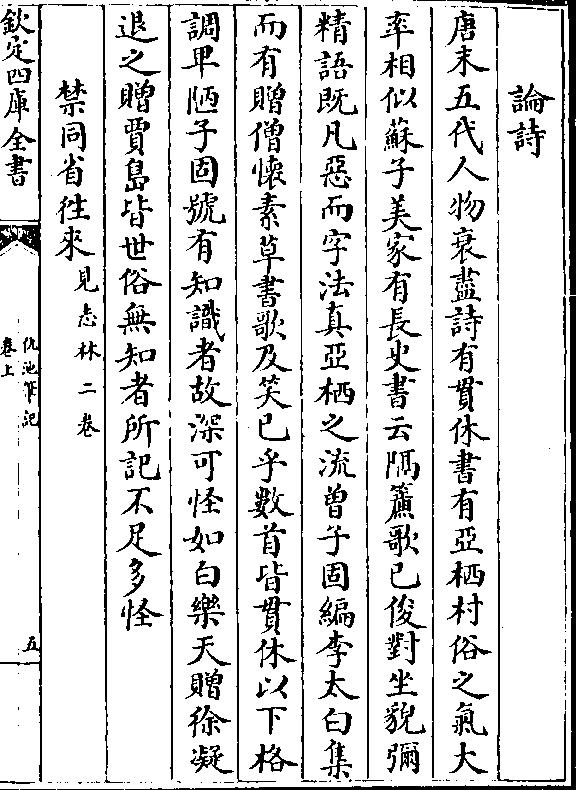 論詩
唐末五代人物衰盡詩有貫休書有亞栖村俗之氣大
率相似蘇子美家有長史書云隔簾歌已俊對坐貌彌
精語既凡惡而字法真亞栖之流曾子固編李太白集
而有贈僧懷素草書歌及笑已乎數首皆貫休以下格
調卑陋子固號有知識者故深可怪如白樂天贈徐凝
退之贈賈島皆世俗無知者所記不足多怪
禁同省徃來見志林二卷
欽定四庫全書
仇池筆記
卷上
五